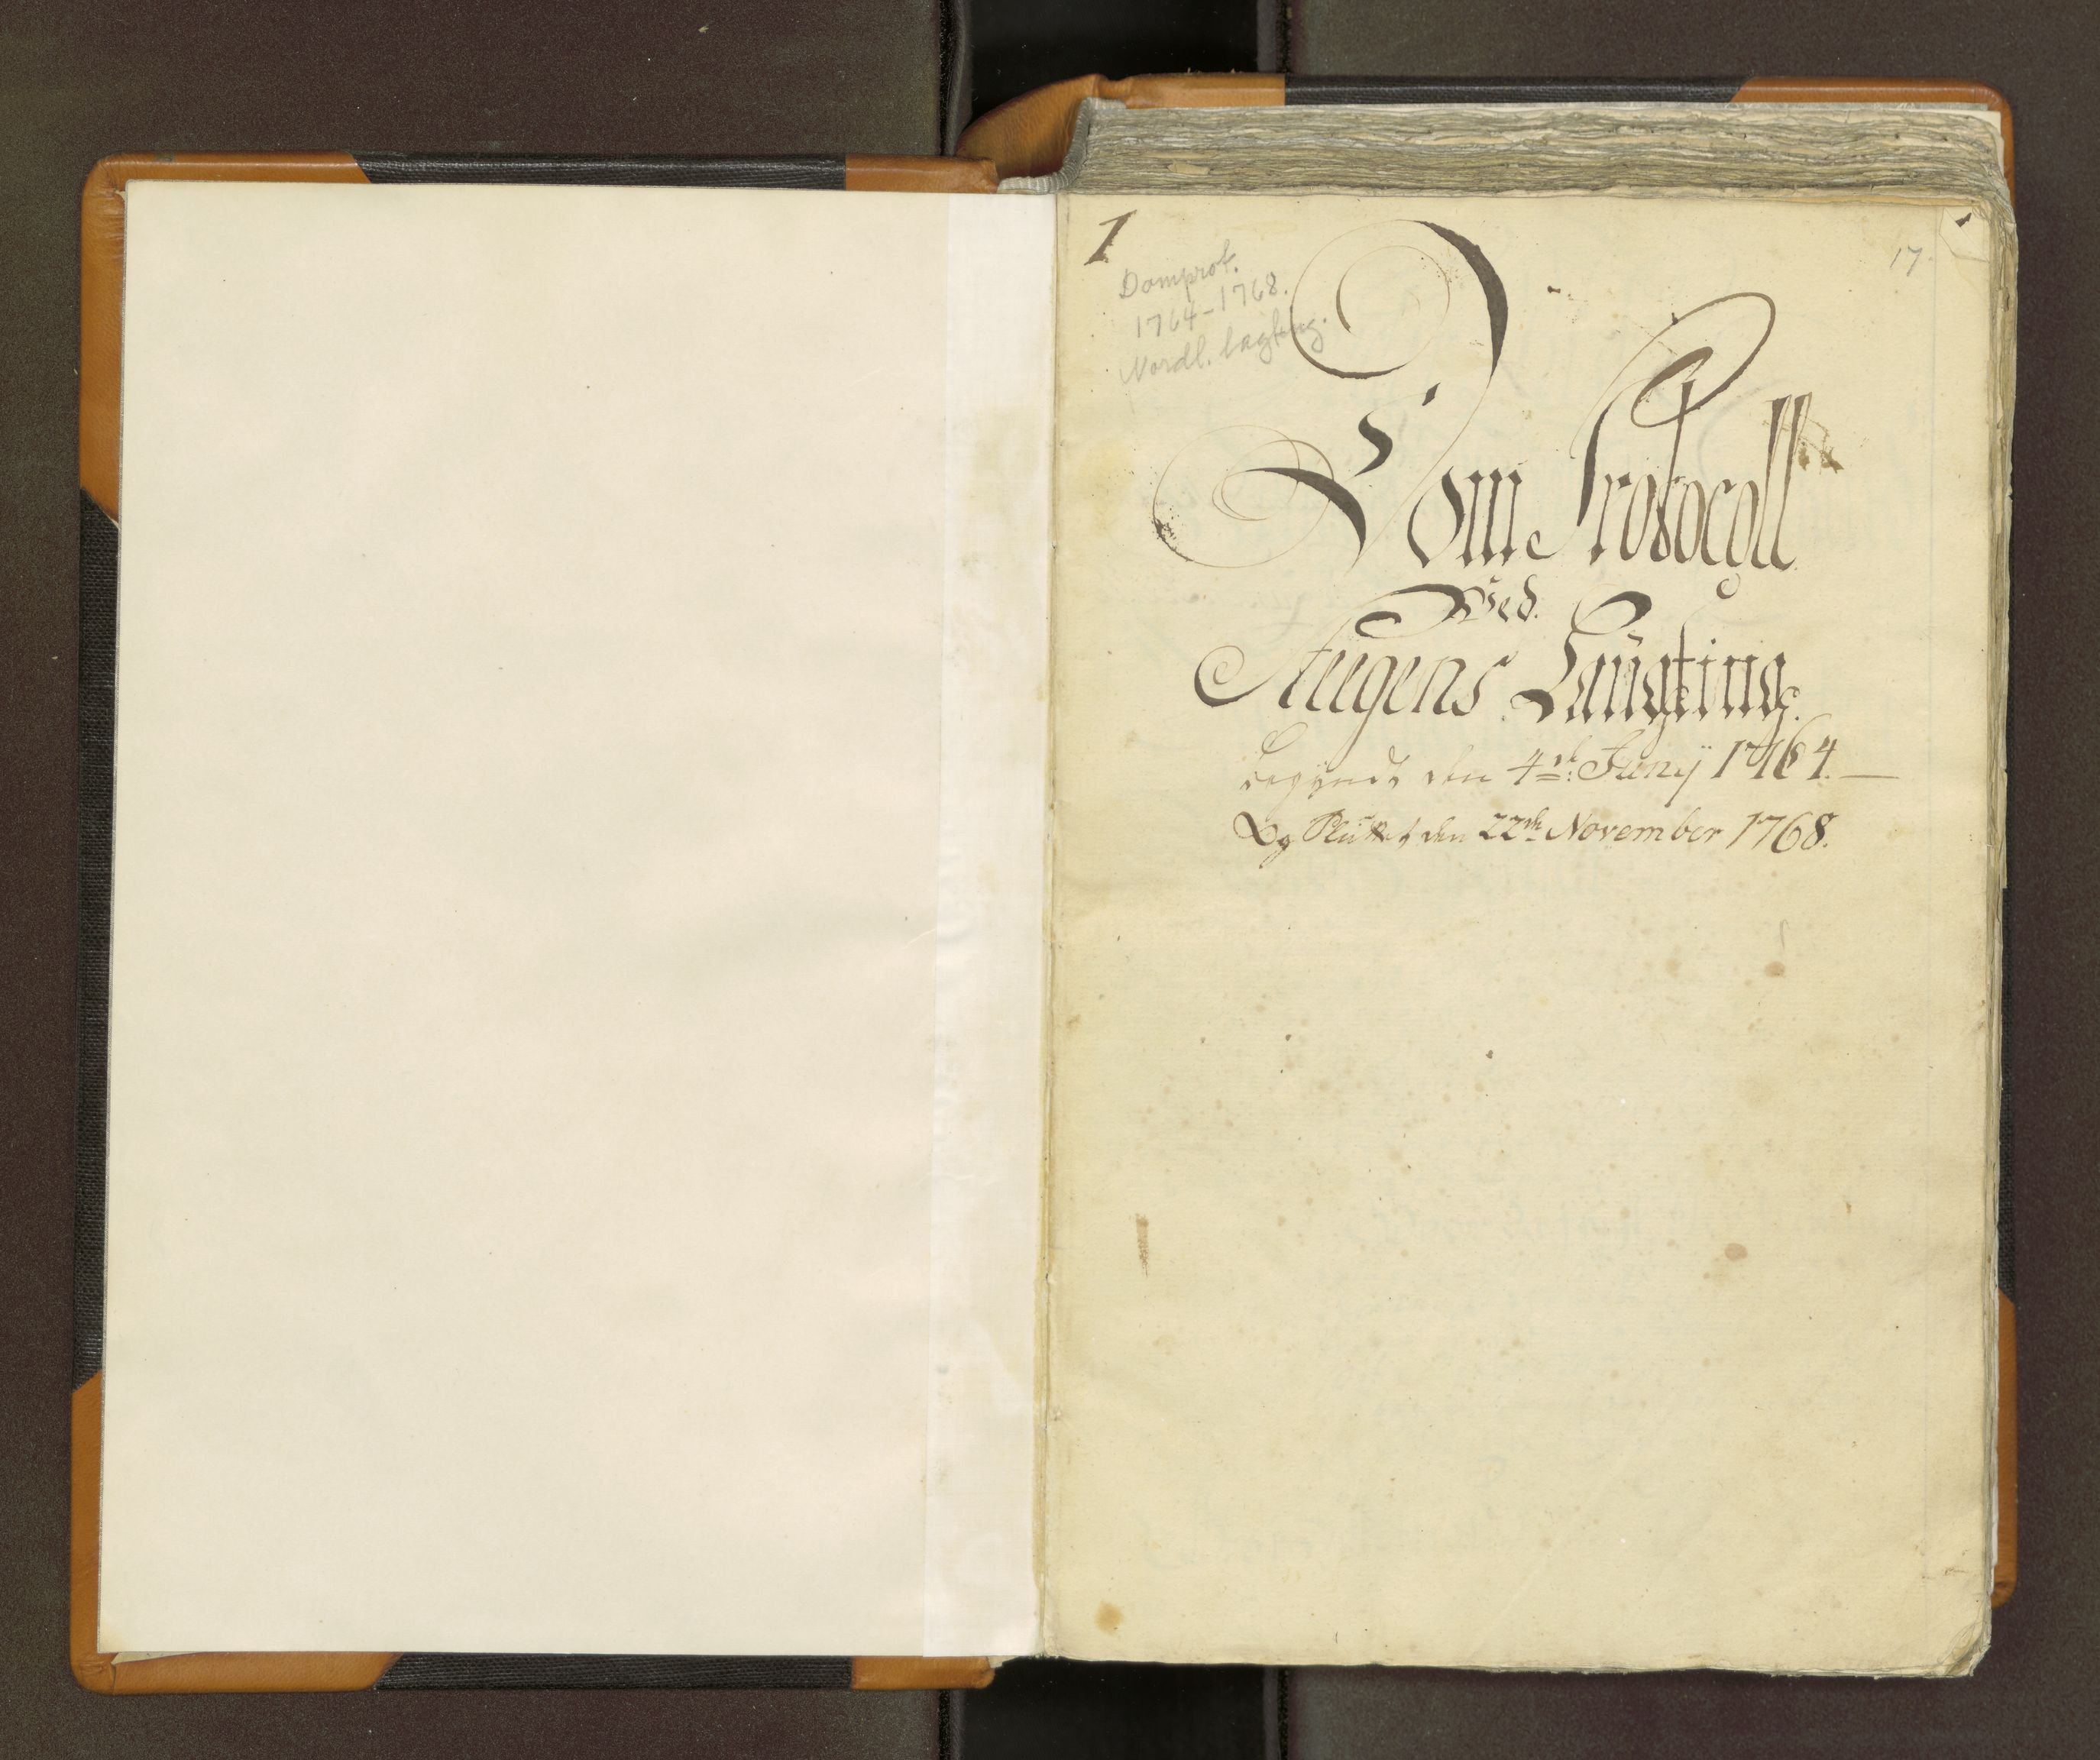 1
17
Domprot.
1764-1768.
Nordl. lagting.
Dom Protocoll
Ved
Steigens Laugting
begyndt den 4de: Junij 1764.
Og Sluttet den 22de November 1768.